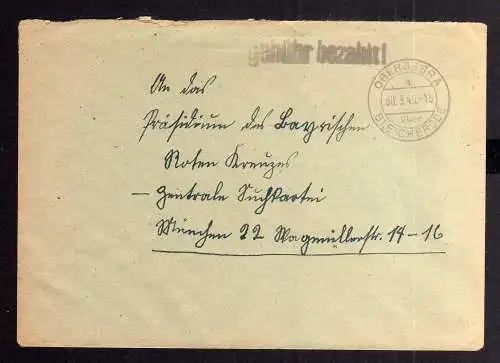 gebühr bezahlt!
OBERGEBRA
a
30.3.46.-18
über
BLEICHERODE
An das
Präsidium des Bayrischen
Roten Kreuzes
– Zentrale Suchkartei
München 22 Wagmüllerstr. 14–16